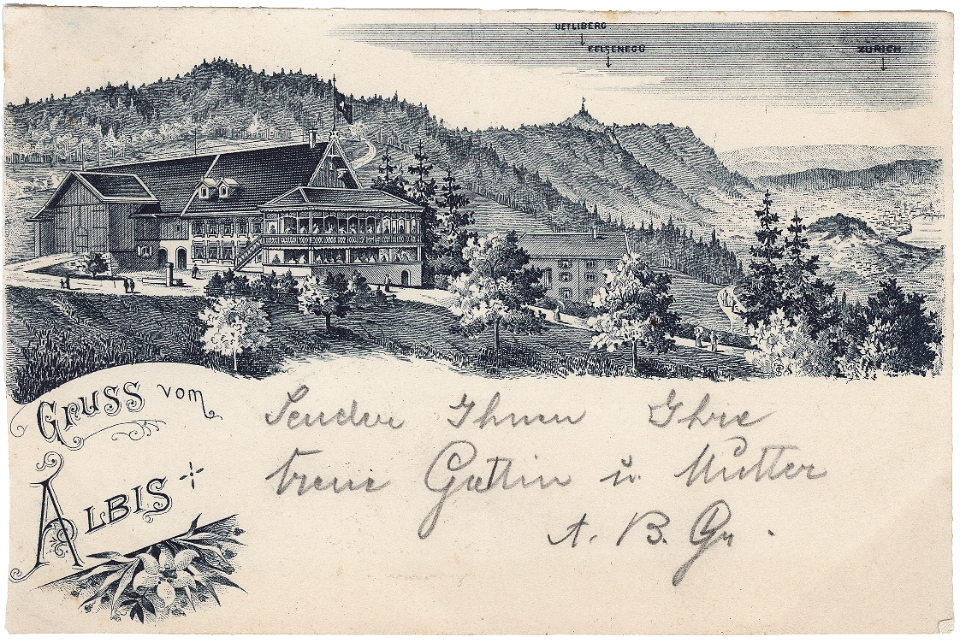 UETLIBERG
FELSENEGG
ZÜRICH
GRUSS VOM
ALBIS
Sender Ihnen Ihre
treue Gattin u. Mutter
A. B. Gr.